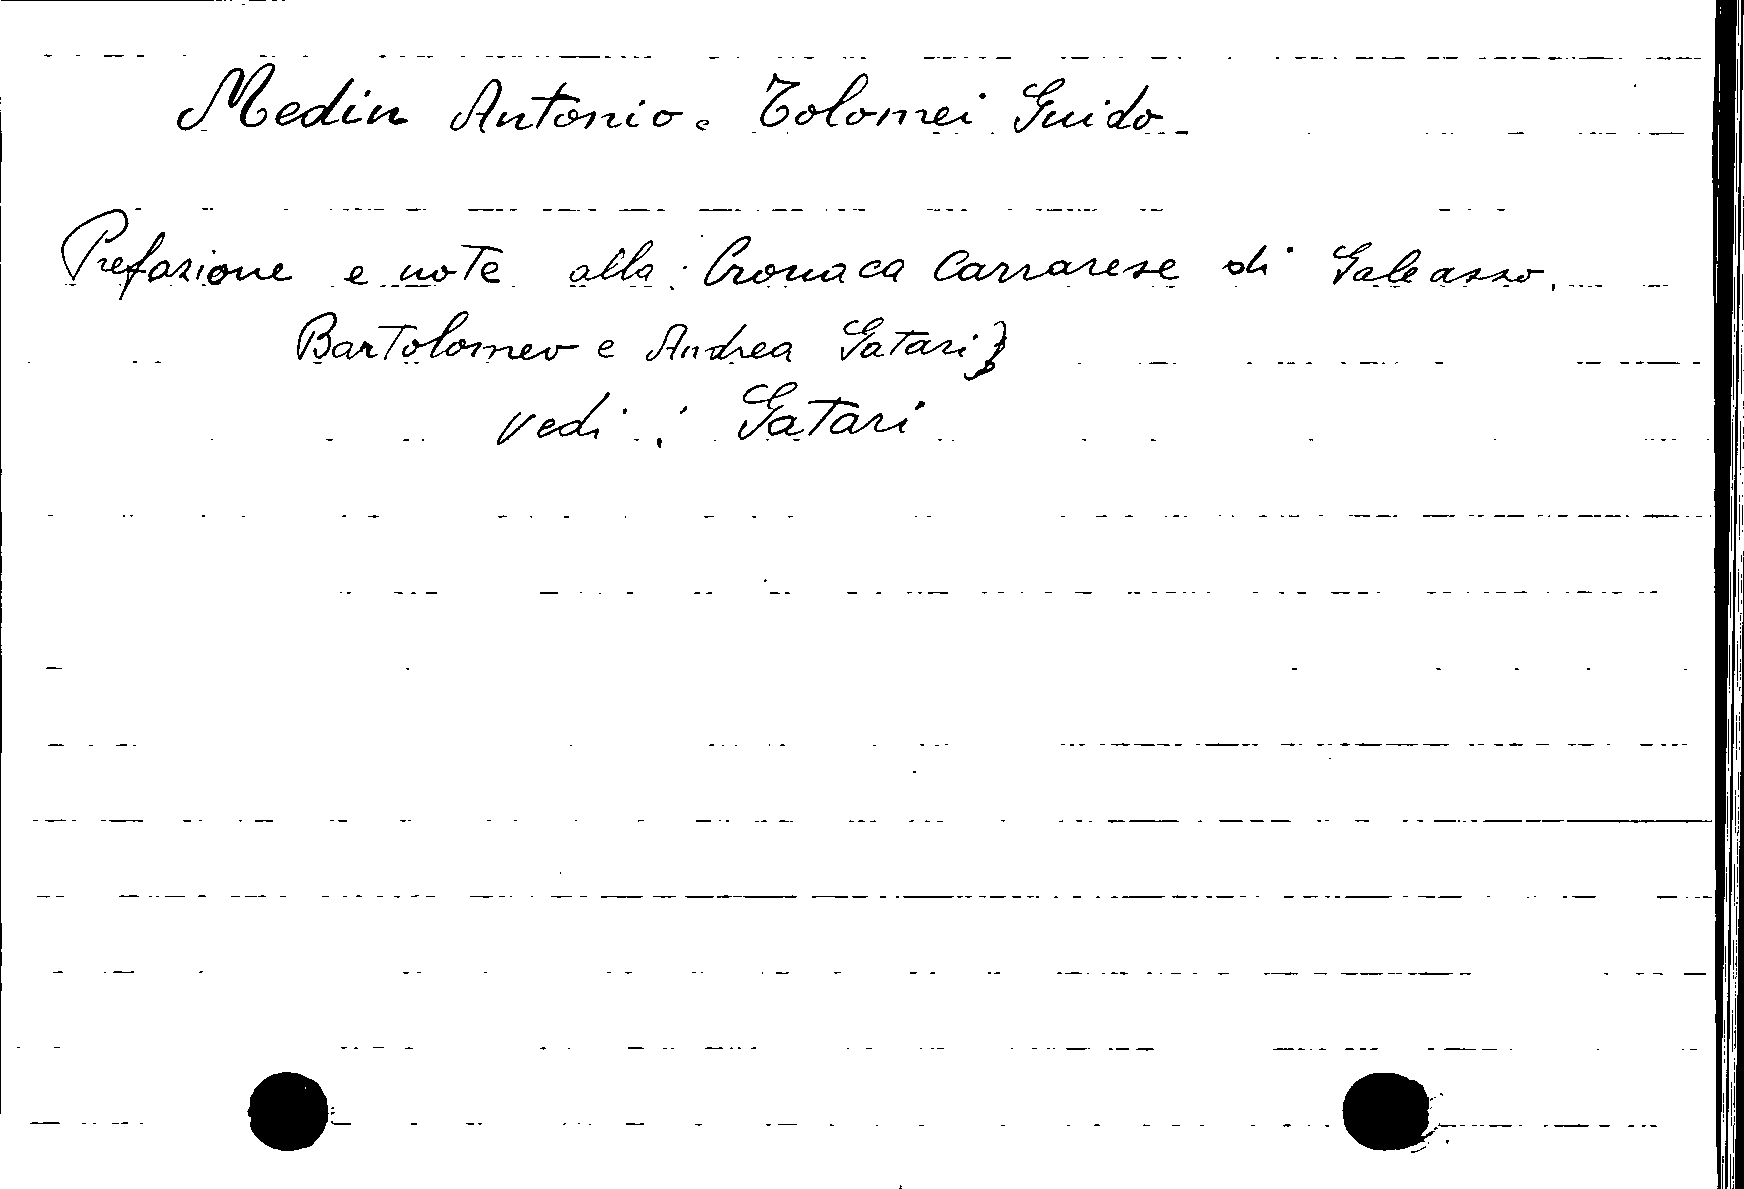 Medin Antonio e Tolomei Guido
Prefazione e note alla: Cronaca Carrarese di Galeasso,
Bartolomeo e Andrea Gatari;
vedi: Gatari